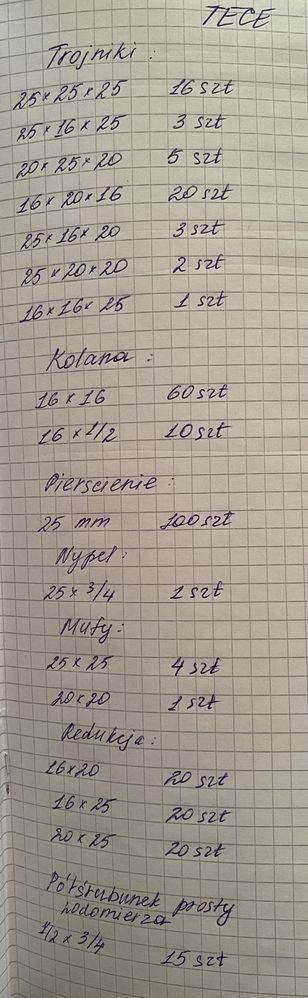 TECE
Trojniki :
25 x 25 x 25 16 szt
25 x 16 x 25 3 szt
20 x 25 x 20 5 szt
16 x 20 x 16 20 szt
25 x 16 x 20 3 szt
25 x 20 x 20 2 szt
16 x 16 x 25 1 szt
Kolana :
16 x 16 60 szt
16 x 1/2 10 szt
Pierscienie :
25 mm 100 szt
Nypel :
25 x 3/4 1 szt
Mufy :
25 x 25 4 szt
20 x 20 1 szt
Redukcja :
16 x 20 20 szt
16 x 25 20 szt
20 x 25 20 szt
Półśrubunek prosty
wodomierza
1/2 x 3/4 15 szt